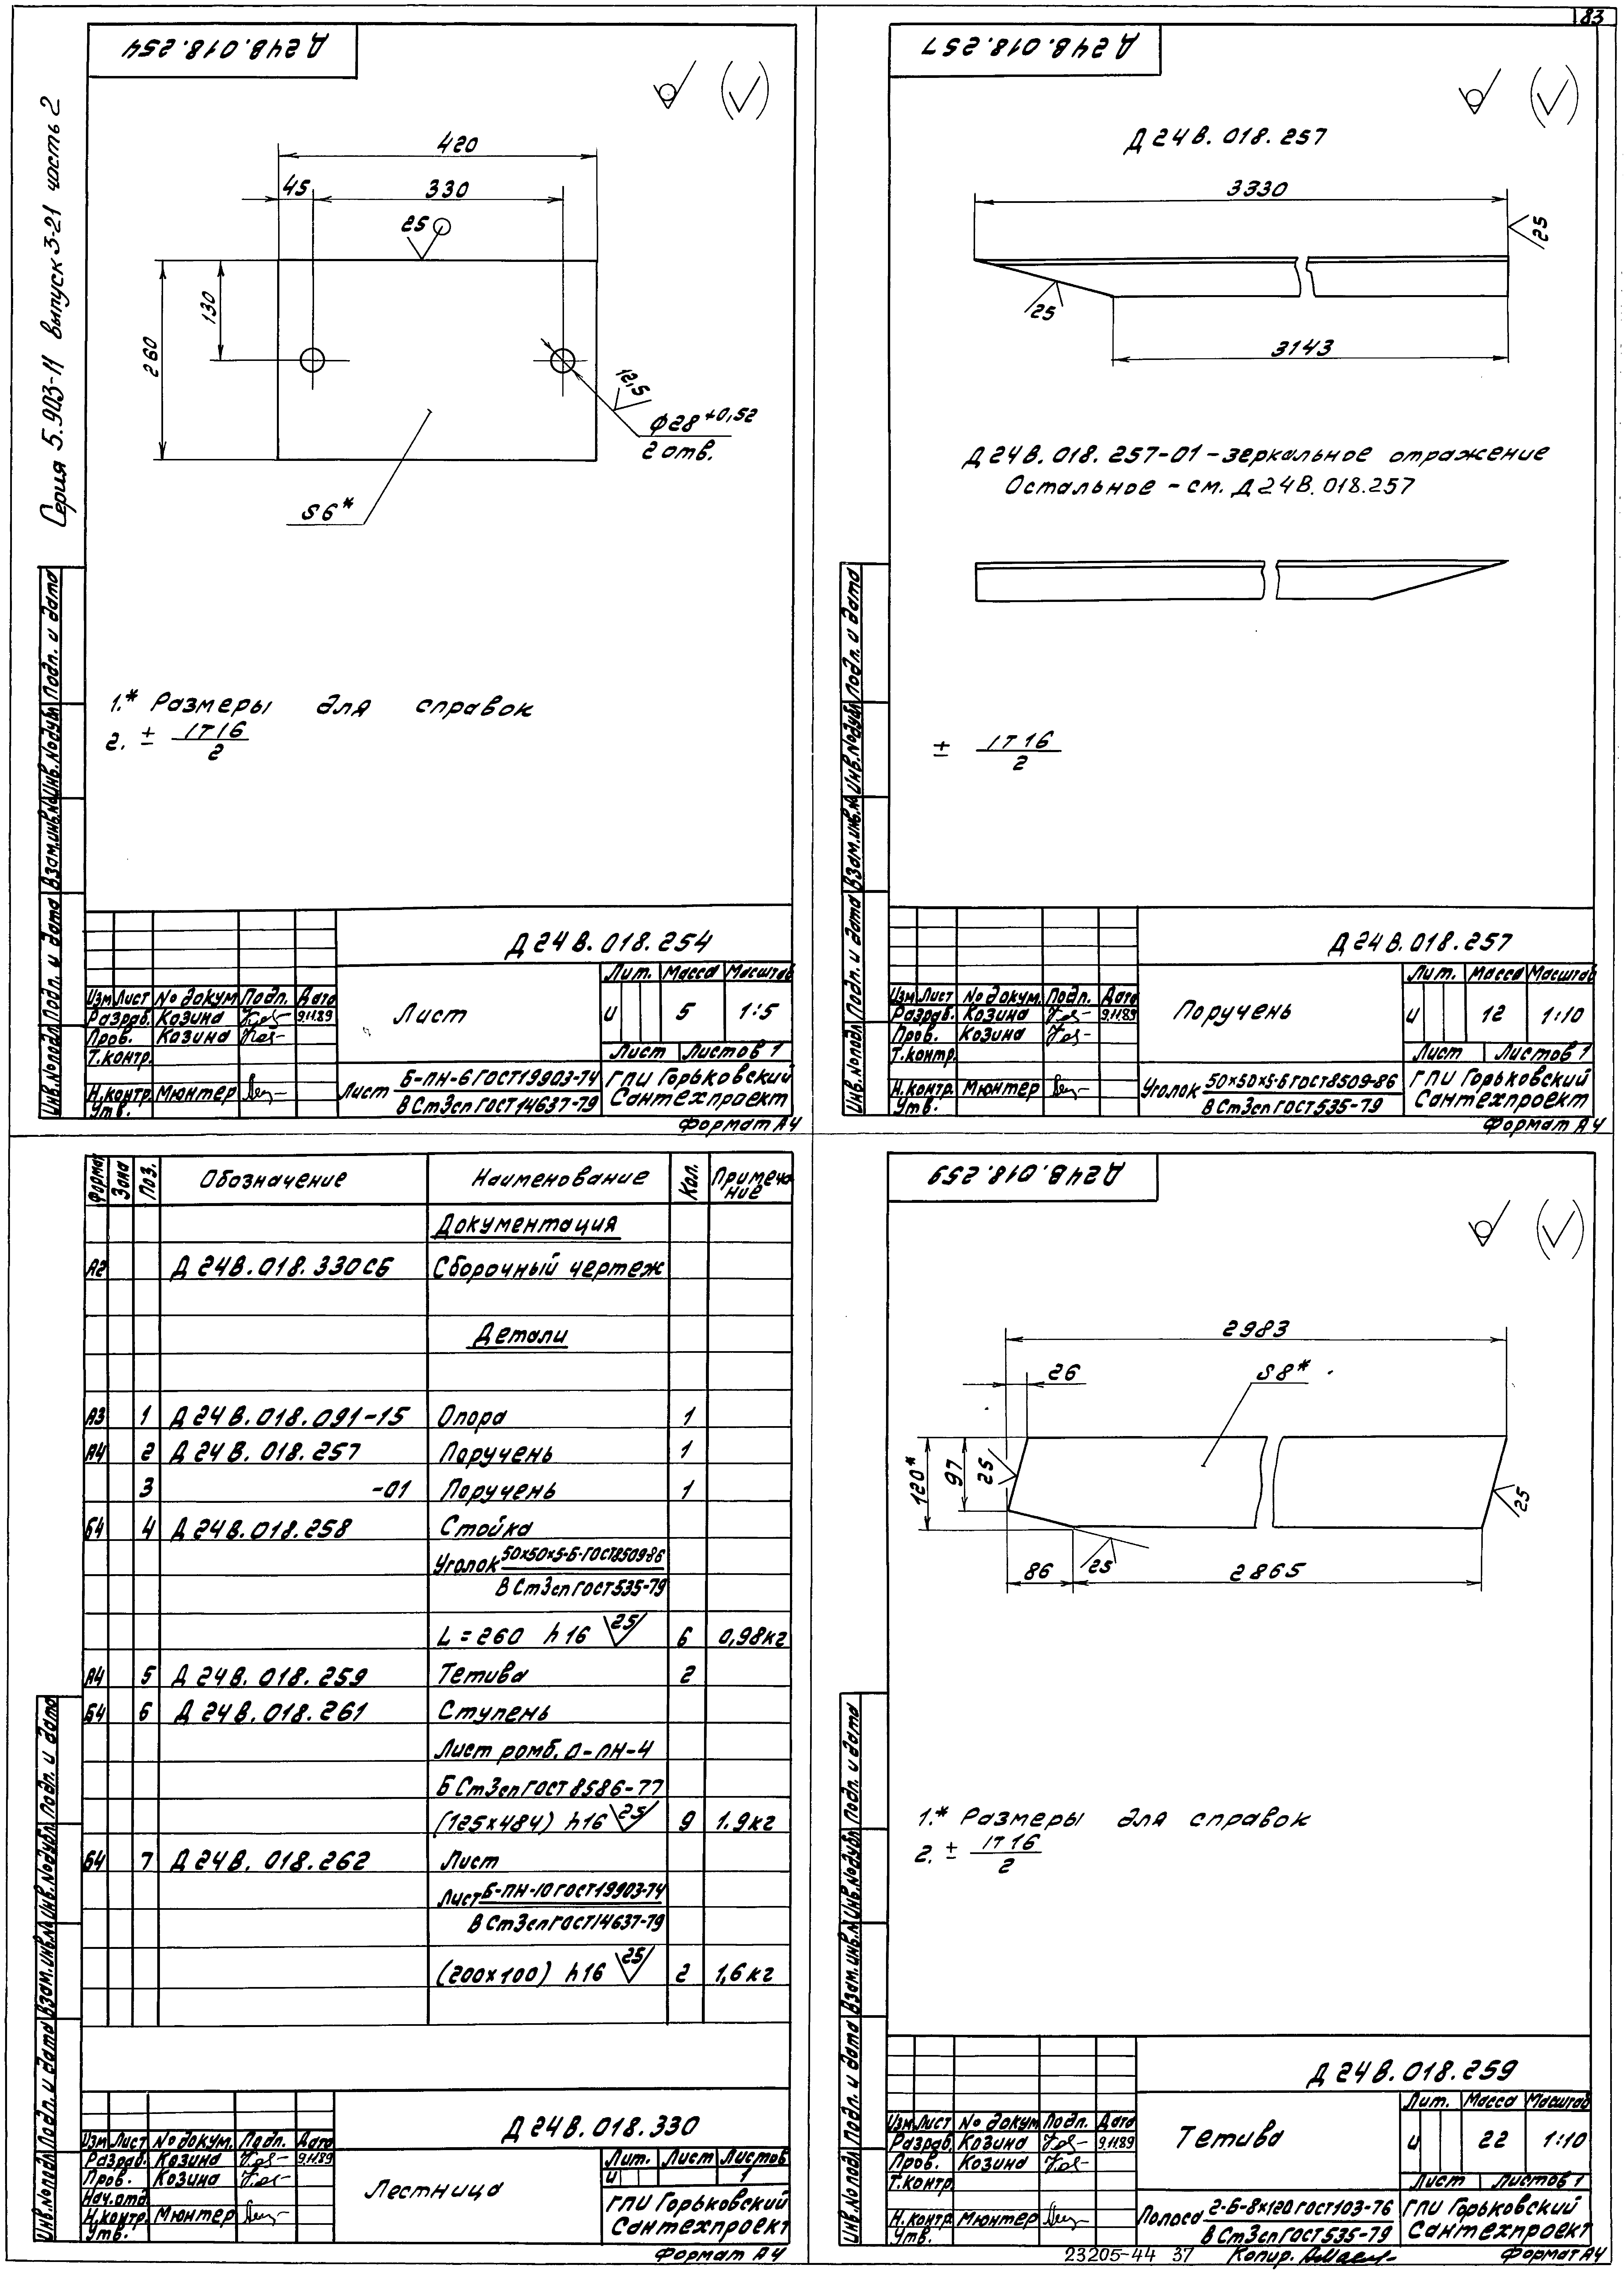 83
Серия 5.903-11 выпуск 3-21 часть 2
Д24В.018.254
420
45
330
25
260
130
12,5
ф28+0,52
2 отв.
S6*
1.* Размеры для справок
2. ± IT16/2
Инв.№подл. Подп. и дата Взам.инв.№ Инв.№дубл. Подп. и дата
Д24В.018.254
Изм Лист № докум. Подп. Дата
Разраб. Козина 9.11.89
Пров. Козина
Т.контр.
Н.контр. Мюнтер
Утв.
Лист
Лит. Масса Масштаб
и 5 1:5
Лист Листов 1
Лист Б-ПН-6 ГОСТ 19903-74
В Ст3сп ГОСТ 14637-79
ГПИ Горьковский
Сантехпроект
Формат А4
Д24В.018.257
Д24В.018.257
3330
25
25
3143
Д24В.018.257-01 - зеркальное отражение
Остальное - см. Д24В.018.257
± IT16/2
Инв.№подл. Подп. и дата Взам.инв.№ Инв.№дубл. Подп. и дата
Д24В.018.257
Изм Лист № докум. Подп. Дата
Разраб. Козина 9.11.89
Пров. Козина
Т.контр.
Н.контр. Мюнтер
Утв.
Поручень
Лит. Масса Масштаб
и 12 1:10
Лист Листов 1
Уголок 50х50х5-Б ГОСТ 8509-86
В Ст3сп ГОСТ 535-79
ГПИ Горьковский
Сантехпроект
Формат А4
Формат Зона Поз. Обозначение Наименование Кол. Примеча-
ние
Документация
А2 Д24В.018.330СБ Сборочный чертеж
Детали
А3 1 Д24В.018.091-15 Опора 1
А4 2 Д24В.018.257 Поручень 1
3 -01 Поручень 1
Б4 4 Д24В.018.258 Стойка
Уголок 50х50х5-Б-ГОСТ8509-86
В Ст3сп ГОСТ 535-79
L=260 h16 25 6 0,98кг
А4 5 Д24В.018.259 Тетива 2
Б4 6 Д24В.018.261 Ступень
Лист ромб. О-ПН-4
Б Ст3сп ГОСТ 8586-77
(125х484) h16 25 9 1.9кг
Б4 7 Д24В.018.262 Лист
Лист Б-ПН-10 ГОСТ 19903-74
В Ст3сп ГОСТ 14637-79
(200х100) h16 25 2 1,6кг
Инв.№подл. Подп. и дата Взам.инв.№ Инв.№дубл. Подп. и дата
Д24В.018.330
Изм Лист № докум. Подп. Дата
Разраб. Козина 9.11.89
Пров. Козина
Нач.отд.
Н.контр. Мюнтер
Утв.
Лестница
Лит. Лист Листов
и 1
ГПИ Горьковский
Сантехпроект
Формат А4
Д24В.018.259
2983
26
S8*
120*
97
25
25
25
86
2865
1.* Размеры для справок
2. ± IT16/2
Инв.№подл. Подп. и дата Взам.инв.№ Инв.№дубл. Подп. и дата
Д24В.018.259
Изм Лист № докум. Подп. Дата
Разраб. Козина 9.11.89
Пров. Козина
Т.контр.
Н.контр. Мюнтер
Утв.
Тетива
Лит. Масса Масштаб
и 22 1:10
Лист Листов 1
Полоса 2-Б-8х120 ГОСТ 103-76
В Ст3сп ГОСТ 535-79
ГПИ Горьковский
Сантехпроект
23205-44 37 Копир. Формат А4